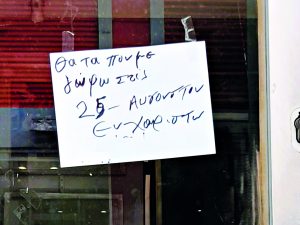 Θα τα πούμε
γύρω στις
25 - Αυγούστου
Ευ-χαριστώ